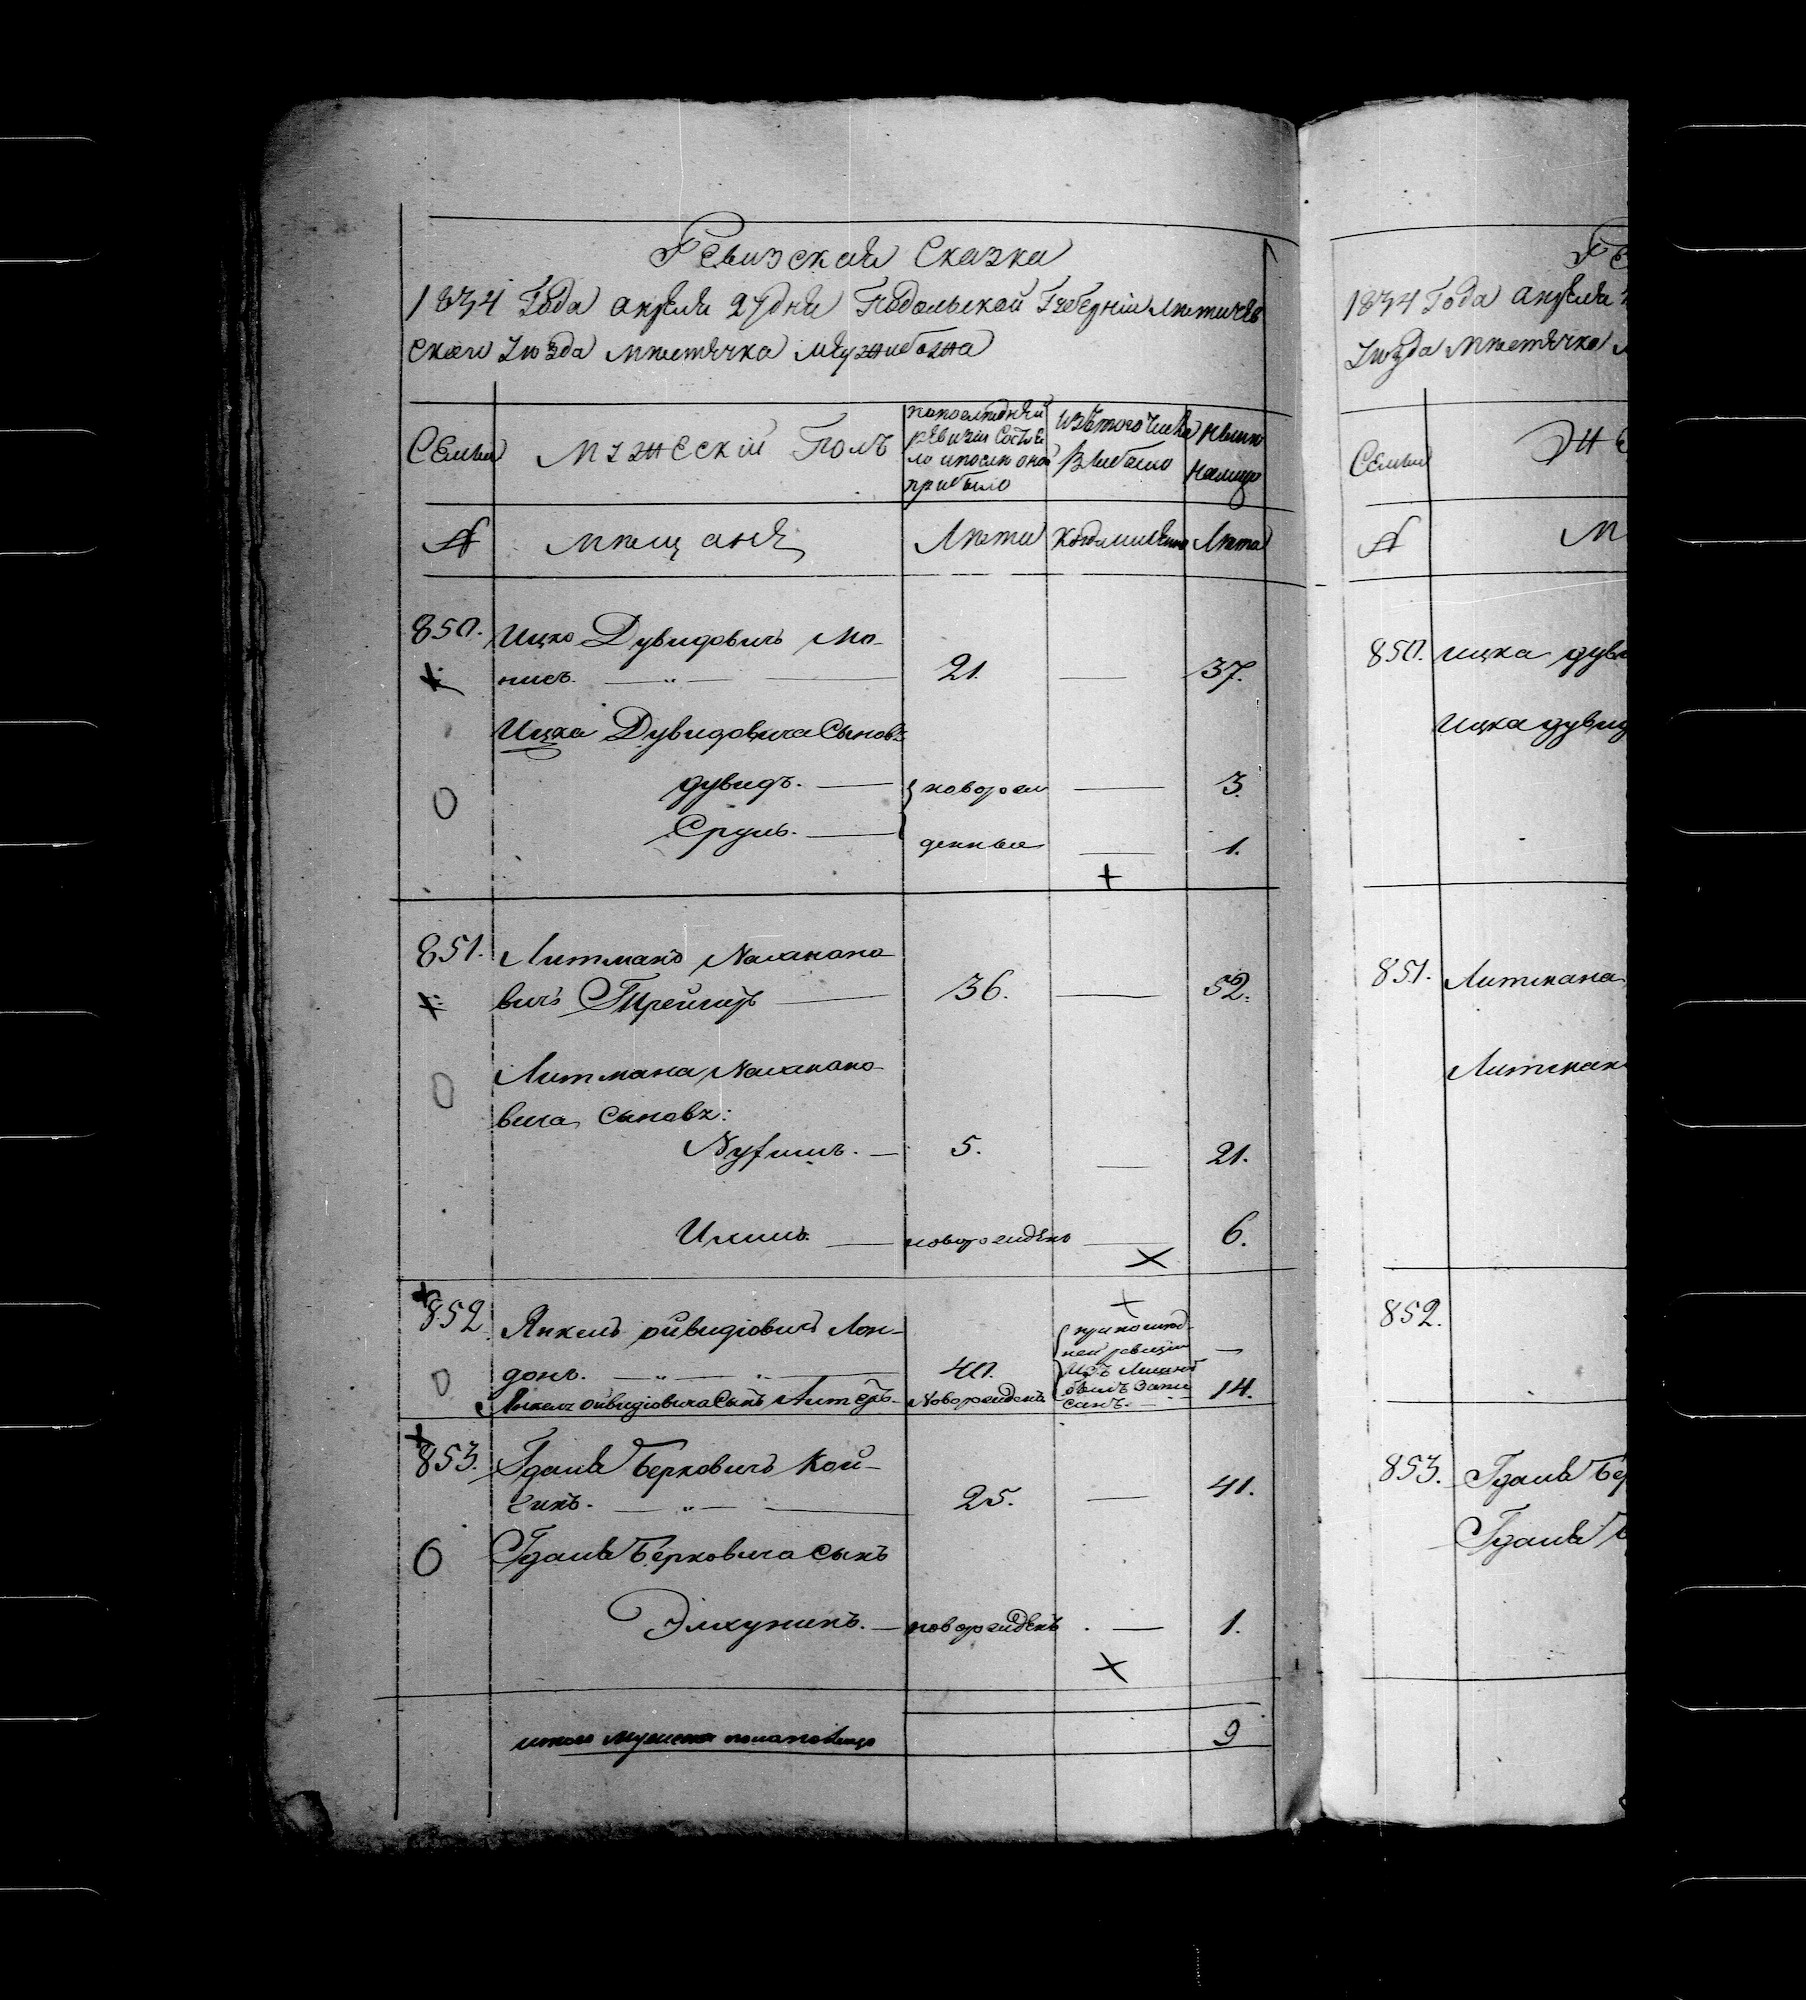 Ревизская Сказка
1834 Года апреля 27 дня Подольской Губерніи Летичев
скаго Уезда местечка Меужибожа
Семьи
мужескій Полъ
попоследней
ревизіи Состоя
ло ипосле оной
прибыло
Изътого Числа
Выбыло
Ныне
налицо
№
мещане
Лета
Когда имянно
Лета
850. Ицко Дувидовичъ Мо-
нисъ. — „ — 21. — 37.
Ицка Дувидовича Сыновъ
дувидъ. — новорож — 3.
Сруль. — денные — 1.
851. Литманъ Нахмано
вичъ 36. — 52.
Литмана Нахмано-
вича Сыновъ:
5. — 21.
— новорожденъ — 6.
852. Янкель Лон-
донъ. — „ — „ — 40. —
припослед-
ней ревизіи
былъ запи
санъ.
Сынъ — Новорожденъ 14.
853. Гдаля Берковичъ Кой-
— „ — 25. — 41.
Гдаля Берковича Сынъ
Элхунинъ. — новорожденъ — 1.
итого Мужеска пола налицо 9
1834 Года апреля
Уезда местечка
Семьи
№
850. ицка
Ицка
851. Литмана
852.
853. Гдаля
Гдаля